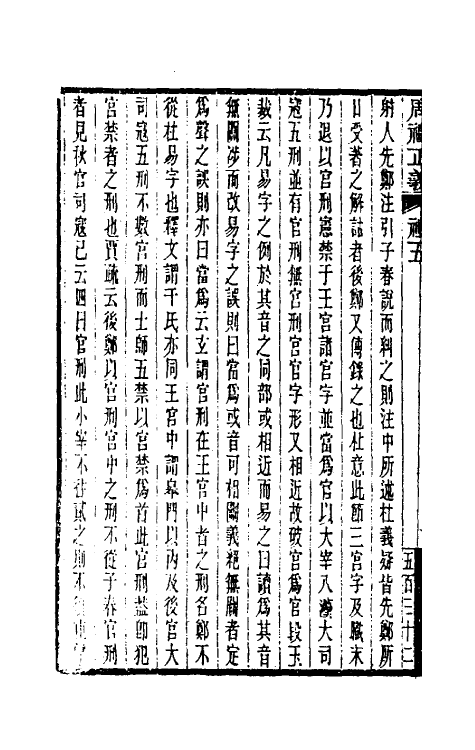 周禮正義 禮五
五百三十二
射人先鄭注引子春說而糾之則注中所述杜義疑皆先鄭所
口受著之解詁者後鄭又傳錄之也杜意此節三宮字及職末
乃退以宮刑憲禁于王宮諸宮字並當爲官以大宰八灋大司
寇五刑並有官刑無宮刑官宮字形又相近故破宮爲官段玉
裁云凡易字之例於其音之同部或相近而易之曰讀爲其音
無關涉而改易字之誤則曰當爲或音可相關義絕無關者定
爲聲之誤則亦曰當爲云玄謂宮刑在王宮中者之刑名鄭不
從杜易字也釋文謂干氏亦同王宮中謂皋門以內及後宮大
司寇五刑不數宮刑而士師五禁以宮禁爲首此宮刑蓋卽犯
宮禁者之刑也賈疏云後鄭以宮刑宮中之刑不從子春官刑
者見秋官司寇已云四曰官刑此小宰不往貳之則不